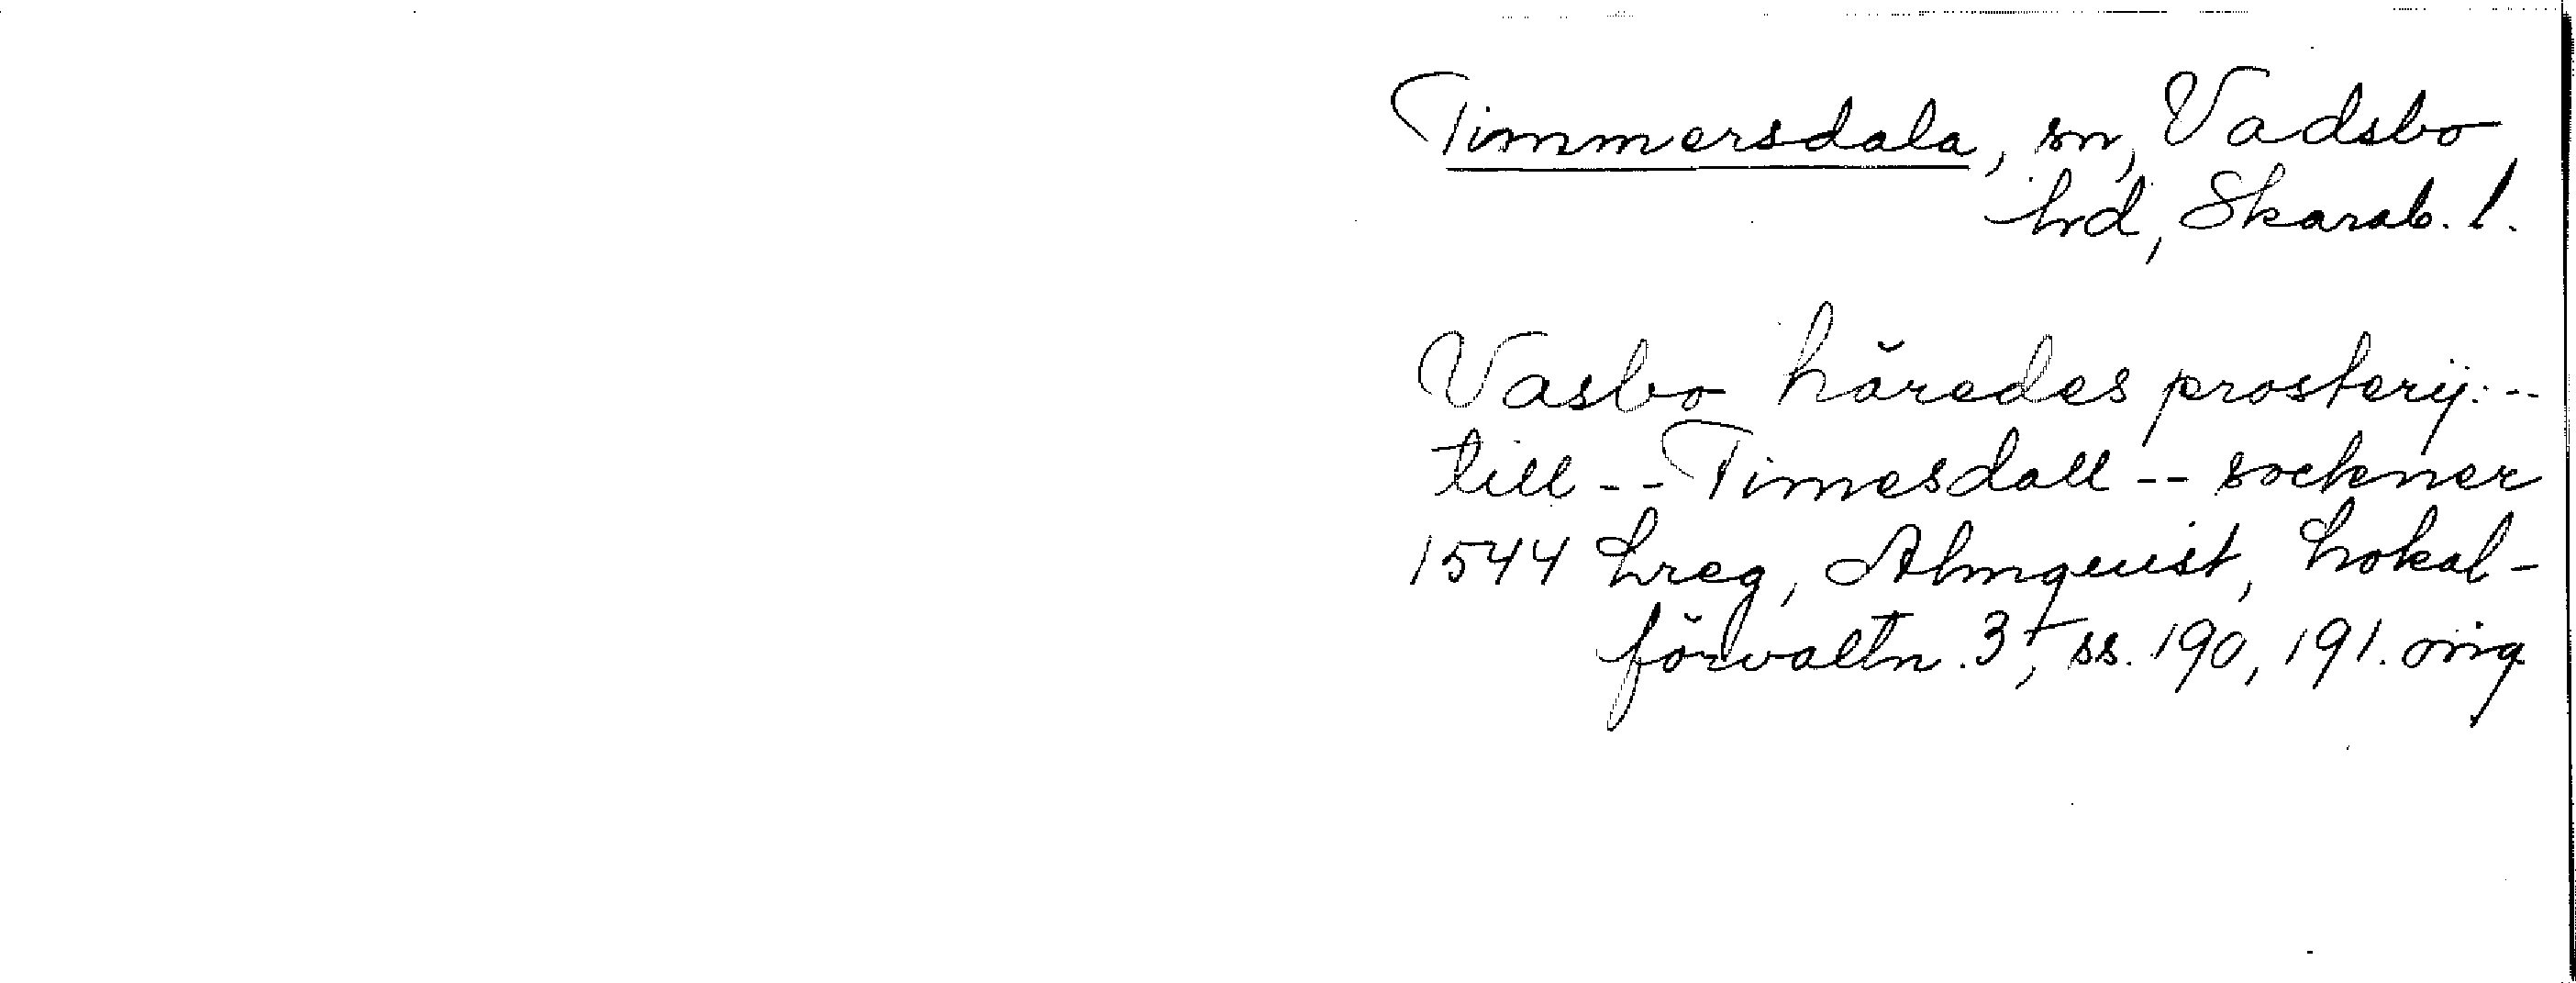 Timmersdala, sn, Vadsbo
hd, Skarab. l.
Vasbo häredes prosterij: --
till -- Timesdall -- sockner
1544 Lreg, Almquist, Lokal-
förvaltn. 3, ss. 190, 191. orig